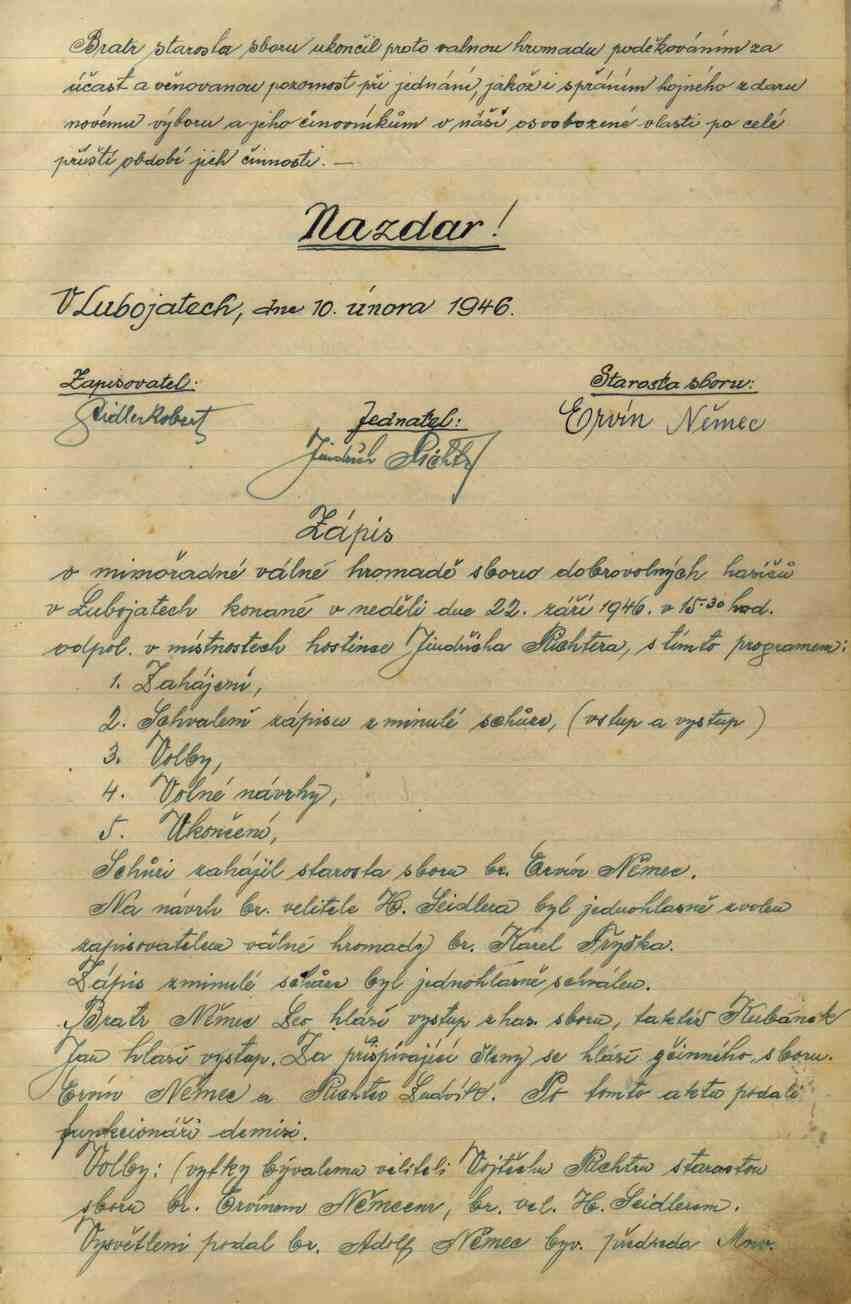 Bratr starosta sboru ukončil proto valnou hromadu poděkováním za
účast a věnovanou pozornost při jednání, jakož i spřáním hojného zdaru
novému výboru a jeho činovníkům v náší osvobozené vlasti po celé
příští období jich činnosti. —
Nazdar!
V Lubojatech, dne 10. února 1946.
Zapisovatel: Starosta sboru:
Seidler Robert Jednatel: Ervín Němec
Jindřich Richtr
Zápis
o mimořádné válné hromadě sboru dobrovolných hasičů
v Lubojatech konané v neděli dne 22. září 1946. v 15.30 hod.
odpol. v místnostech hostince Jindřicha Richtera, s tímto programem:
1. Zahájení,
2. Schvalení zápisu z minulé schůze, (vstup a vystup)
3. Volby,
4. Volné návrhy,
5. Ukončení,
Schůzi zahájil starosta sboru br. Ervín Němec.
Na návrh br. velitele H. Seidlera byl jednohlasně zvolen
zapisovatelem válné hromady br. Karel Fryška.
Zápis z minulé schůze byl jednohlasně schválen.
Bratr Němec Leo hlásí vystup z has. sboru, taktéž Kubánek
Jan hlasí vystup. Za přispívající členy se hlásí z činného sboru.
Ervín Němec a Richter Ludvík. Po tomto aktu podali
funkcionáři demisi.
Volby: (vytky bývalemu veliteli Vojtěchu Richtru starostou
sboru br. Ervínem Němcem, br. vel. H. Seidlerem.
Vysvětleni podal br. Adolf Němec byv. předseda Mnv.